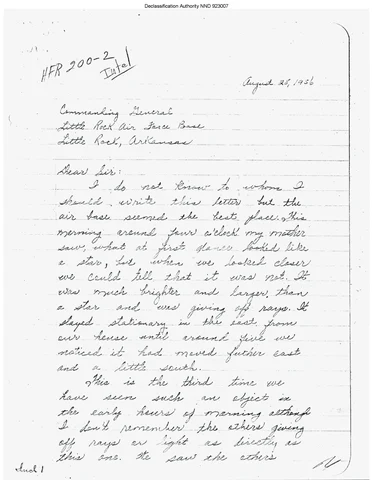 Declassification Authority NND 923007
AFR 200-2
Intel
August 25, 1956
Commanding General
Little Rock Air Force Base
Little Rock, Arkansas
Dear Sir:
I do not know to whom I
should write this letter but the
air base seemed the best place. This
morning around four o'clock my mother
saw, what at first glance looked like
a star, but when we looked closer
we could tell that it was not. It
was much brighter and larger, than
a star and was giving off rays. It
stayed stationary in the east from
our house until around five we
noticed it had moved futher east
and a little south.
This is the third time we
have seen such an object in
the early hours of morning although
I don't remember the others giving
off rays or light as directly as
this one. We saw the others
Incl 1